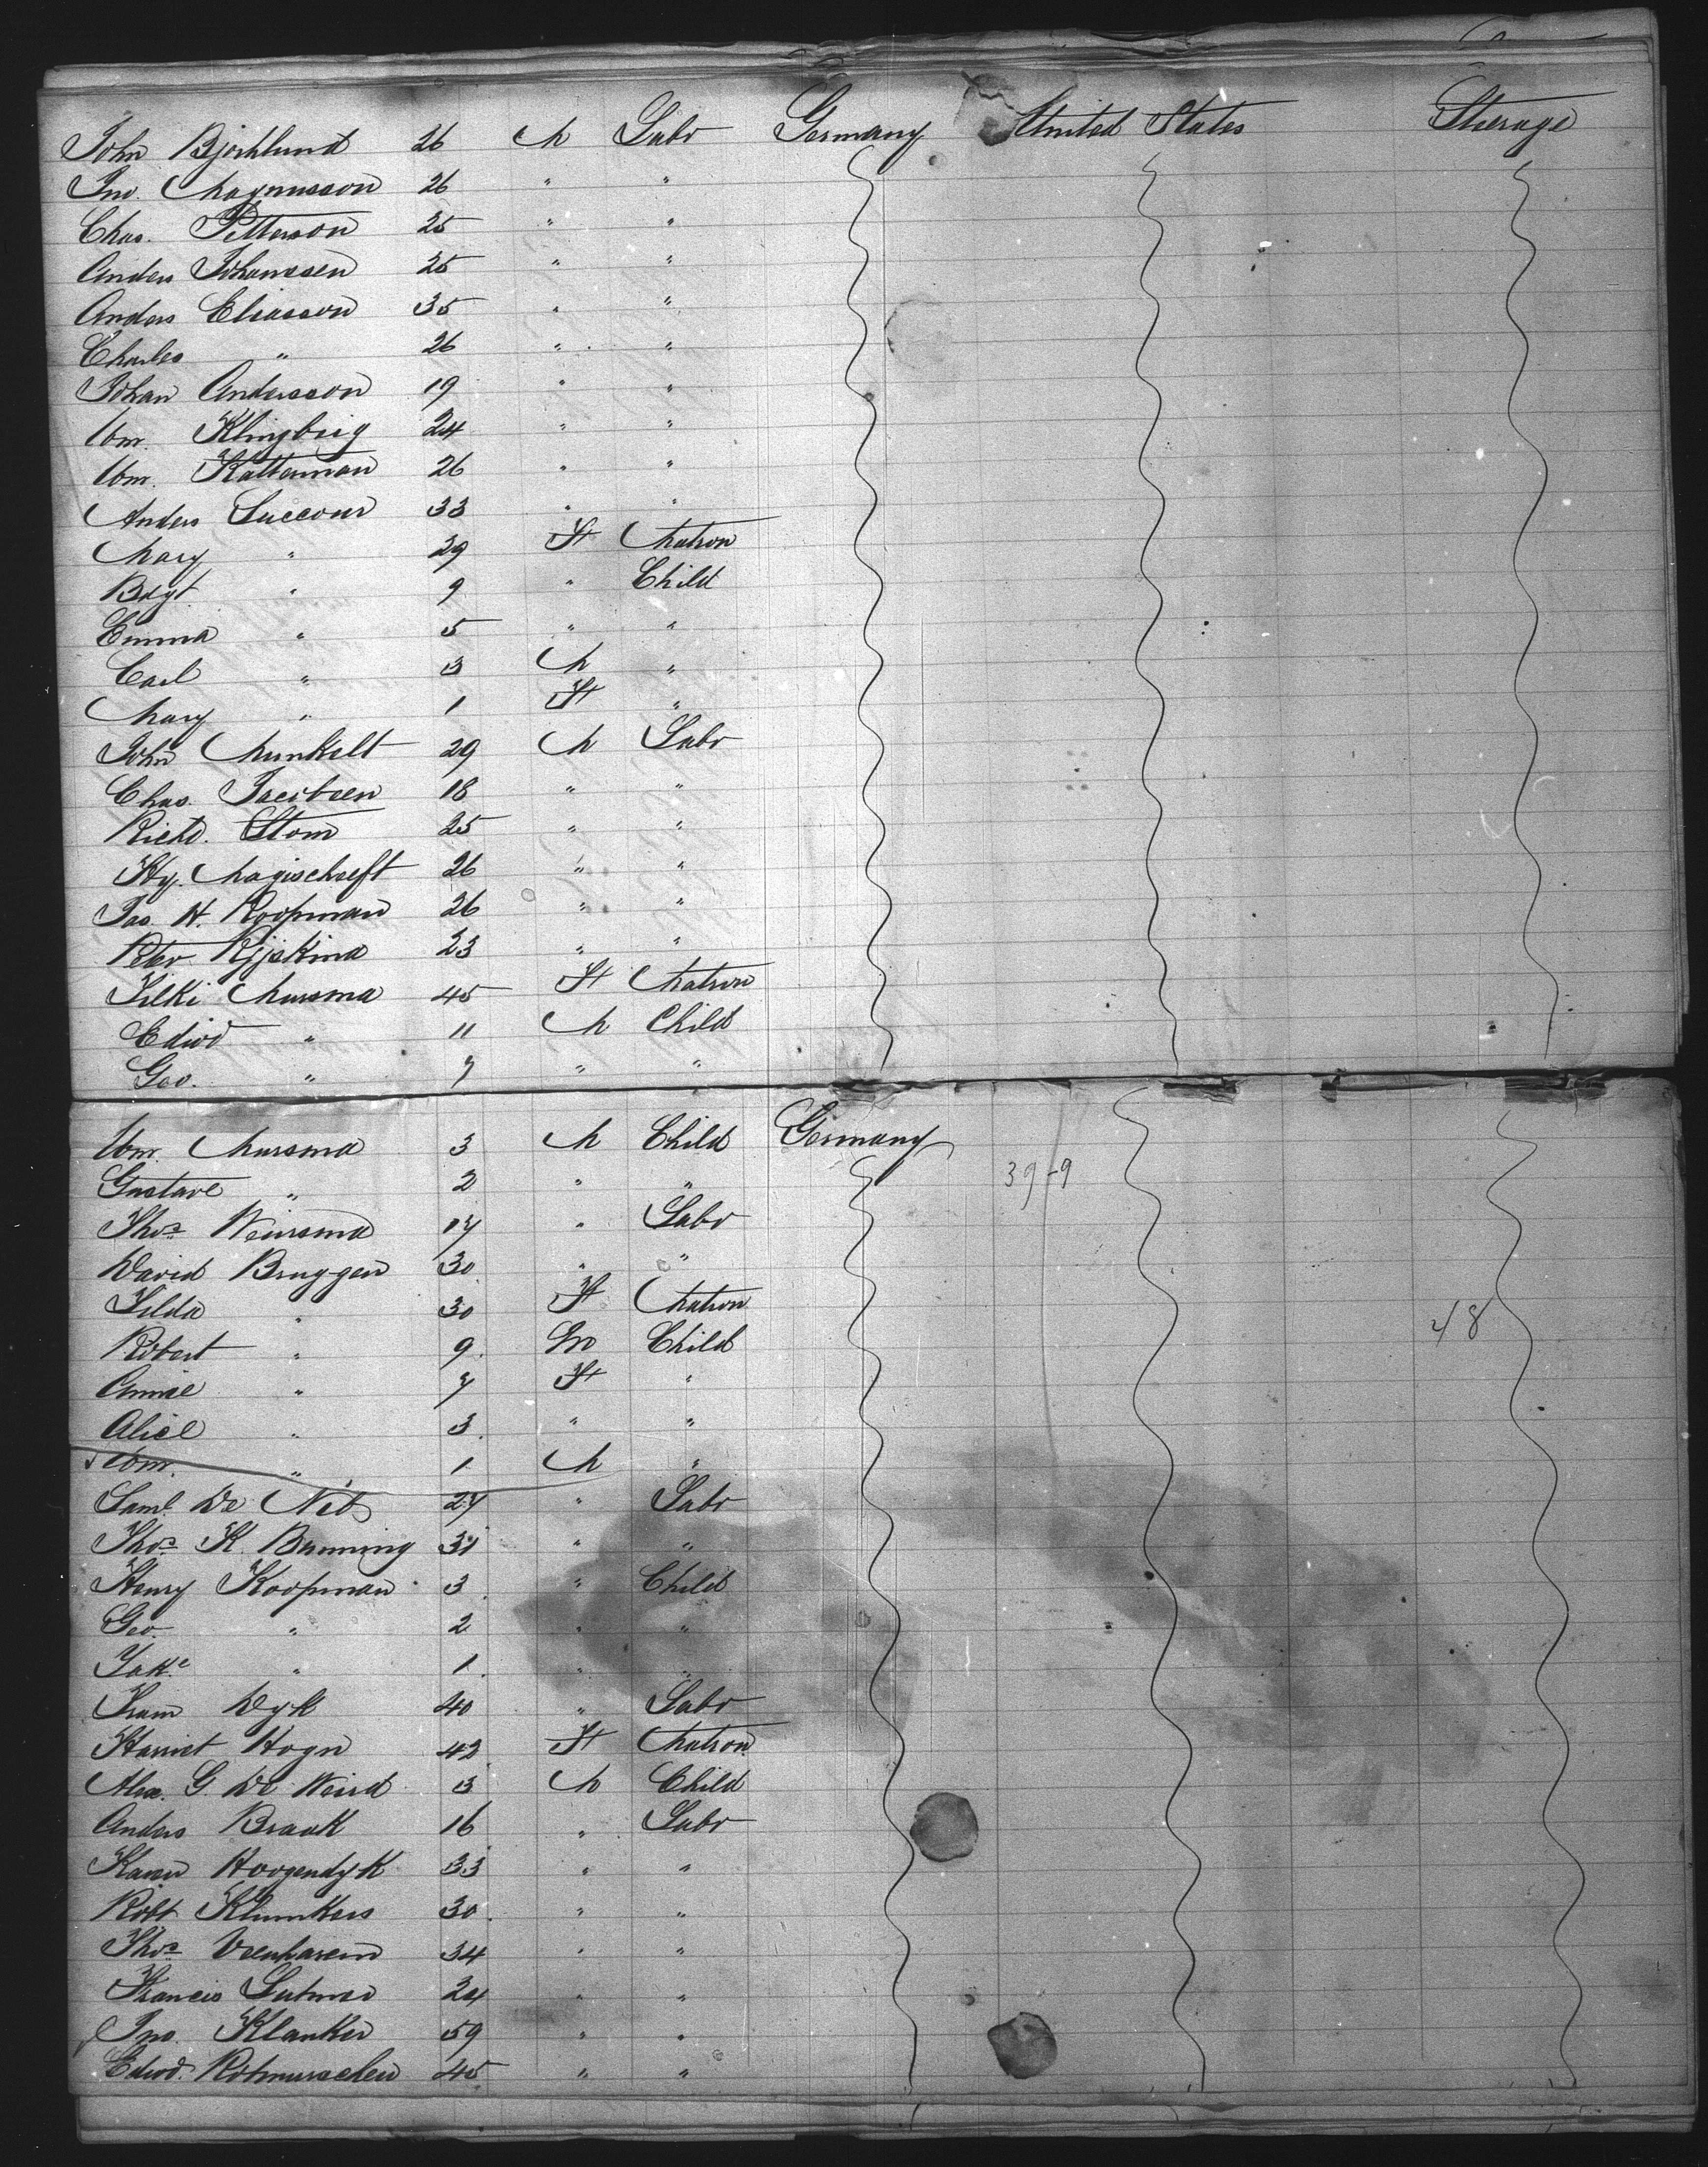 John Bjorklund 26 M Labr Germany United States Steerage
Jno. Magnusson 26 " "
Chas. Petterson 25 " "
Anders Johanssen 25 " "
Anders Eliasson 35 " "
Charles " 26 " "
Johan Andersson 19 " "
Wm. Klingbeig 24 " "
Wm. Katterman 26 " "
Anders Luccour 33 " "
Mary " 29 F Matron
" 9 " Child
Emma " 5 " "
Carl " 3 M "
Mary " 1 F "
John Munkelt 29 M Labr
Chas. Jacobsen 18 " "
Richd. Stom 25 " "
Hy. Magischoeft 26 " "
Jas. H. Koopman 26 " "
Peter Rijskina 23 " "
Silki Mursma 45 F Matron
Edwd " 11 M Child
Geo. " 7 " "
Wm. Mursma 3 M Child Germany
Gustave " 2 " " 39-9
Thos Weirsma 17 " Labr
David Bruggen 30 " "
Tilda " 30 F Matron
Robert " 9 M Child 48
Annie " 7 F "
Alice " 3 " "
Wm. " 1 M "
Saml. De Neb 27 " Labr
Thos K. Bunning 31 " "
Henry Koopman 3 " Child
Geo. " 2 " "
" 1 " "
Dyk 40 " Labr
Harriet Hogn 42 F Matron
Alex. G. De Weird 3 M Child
Anders Braak 16 " Labr
Hoogendyk 33 " "
Robt Klunkers 30 " "
Thos Veenharen 34 " "
Francis Lutmer 24 " "
Jno. Klanker 59 " "
Edwd. 45 " "